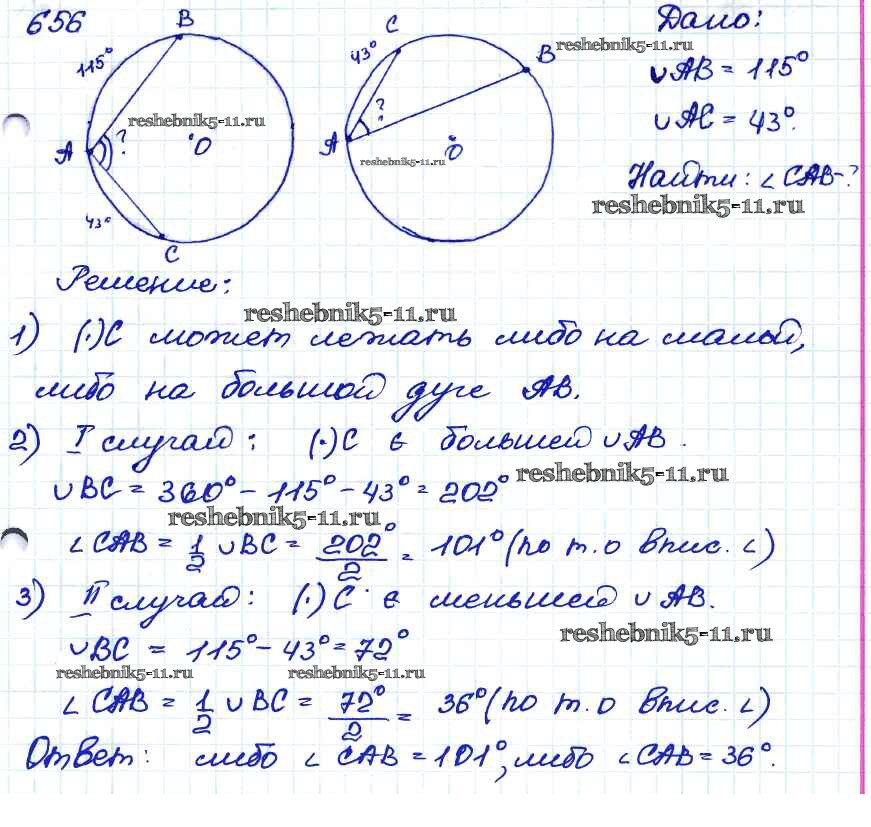 656
B
115°
A
?
O
C
43°
C
43°
B
?
A
O
Дано:
∪AB = 115°
∪AC = 43°.
Найти: ∠CAB-?
reshebnik5-11.ru
reshebnik5-11.ru
reshebnik5-11.ru
reshebnik5-11.ru
Решение:
reshebnik5-11.ru
1) (·)C может лежать либо на малой,
либо на большой дуге AB.
2) I случай: (·)C ∈ большей ∪AB.
reshebnik5-11.ru
∪BC = 360° - 115° - 43° = 202°
reshebnik5-11.ru
∠CAB = 1/2 ∪BC = 202°/2 = 101° (по т.о впис. ∠)
3) II случай: (·)C ∈ меньшей ∪AB.
reshebnik5-11.ru
∪BC = 115° - 43° = 72°
reshebnik5-11.ru reshebnik5-11.ru
∠CAB = 1/2 ∪BC = 72°/2 = 36° (по т.о впис. ∠)
Ответ: либо ∠CAB = 101°, либо ∠CAB = 36°.